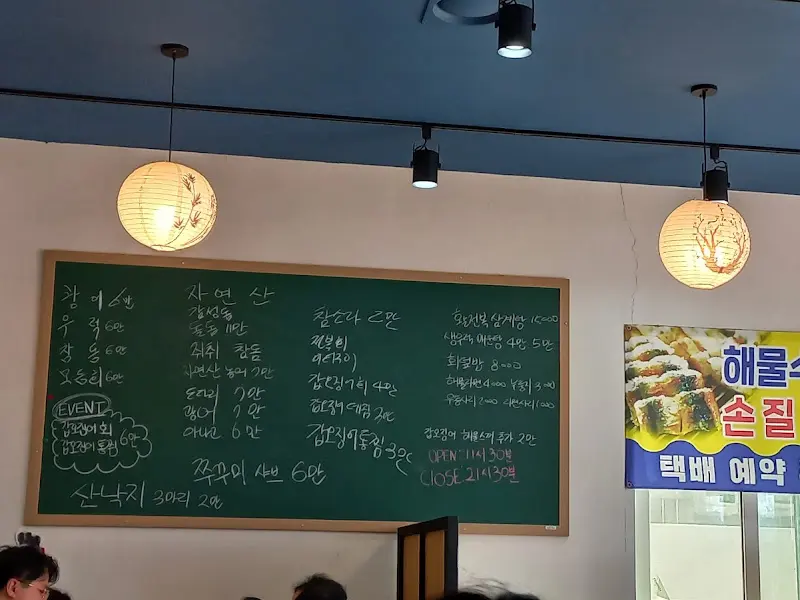 광어 6만
우럭 6만
참돔 6만
모듬회 6만
EVENT
갑오징어 회
갑오징어 통찜 6만
산낙지 3마리 2만
자연산
감성돔
돌돔 11만
자연산 농어 7만
도다리 7만
광어 7만
아나고 6만
쭈꾸미 샤브 6만
참소라 2만
전복회
갑오징어회 4만
갑오징어통찜 3만
황전복 삼계탕 15,000
생우럭 매운탕 4만 5만
회덮밥 8,000
해물라면 4,000
우동사리 2,000 라면사리 1,000
갑오징어 추가 2만
OPEN : 11시 30분
CLOSE : 21시 30분
해물
손질
택배 예약